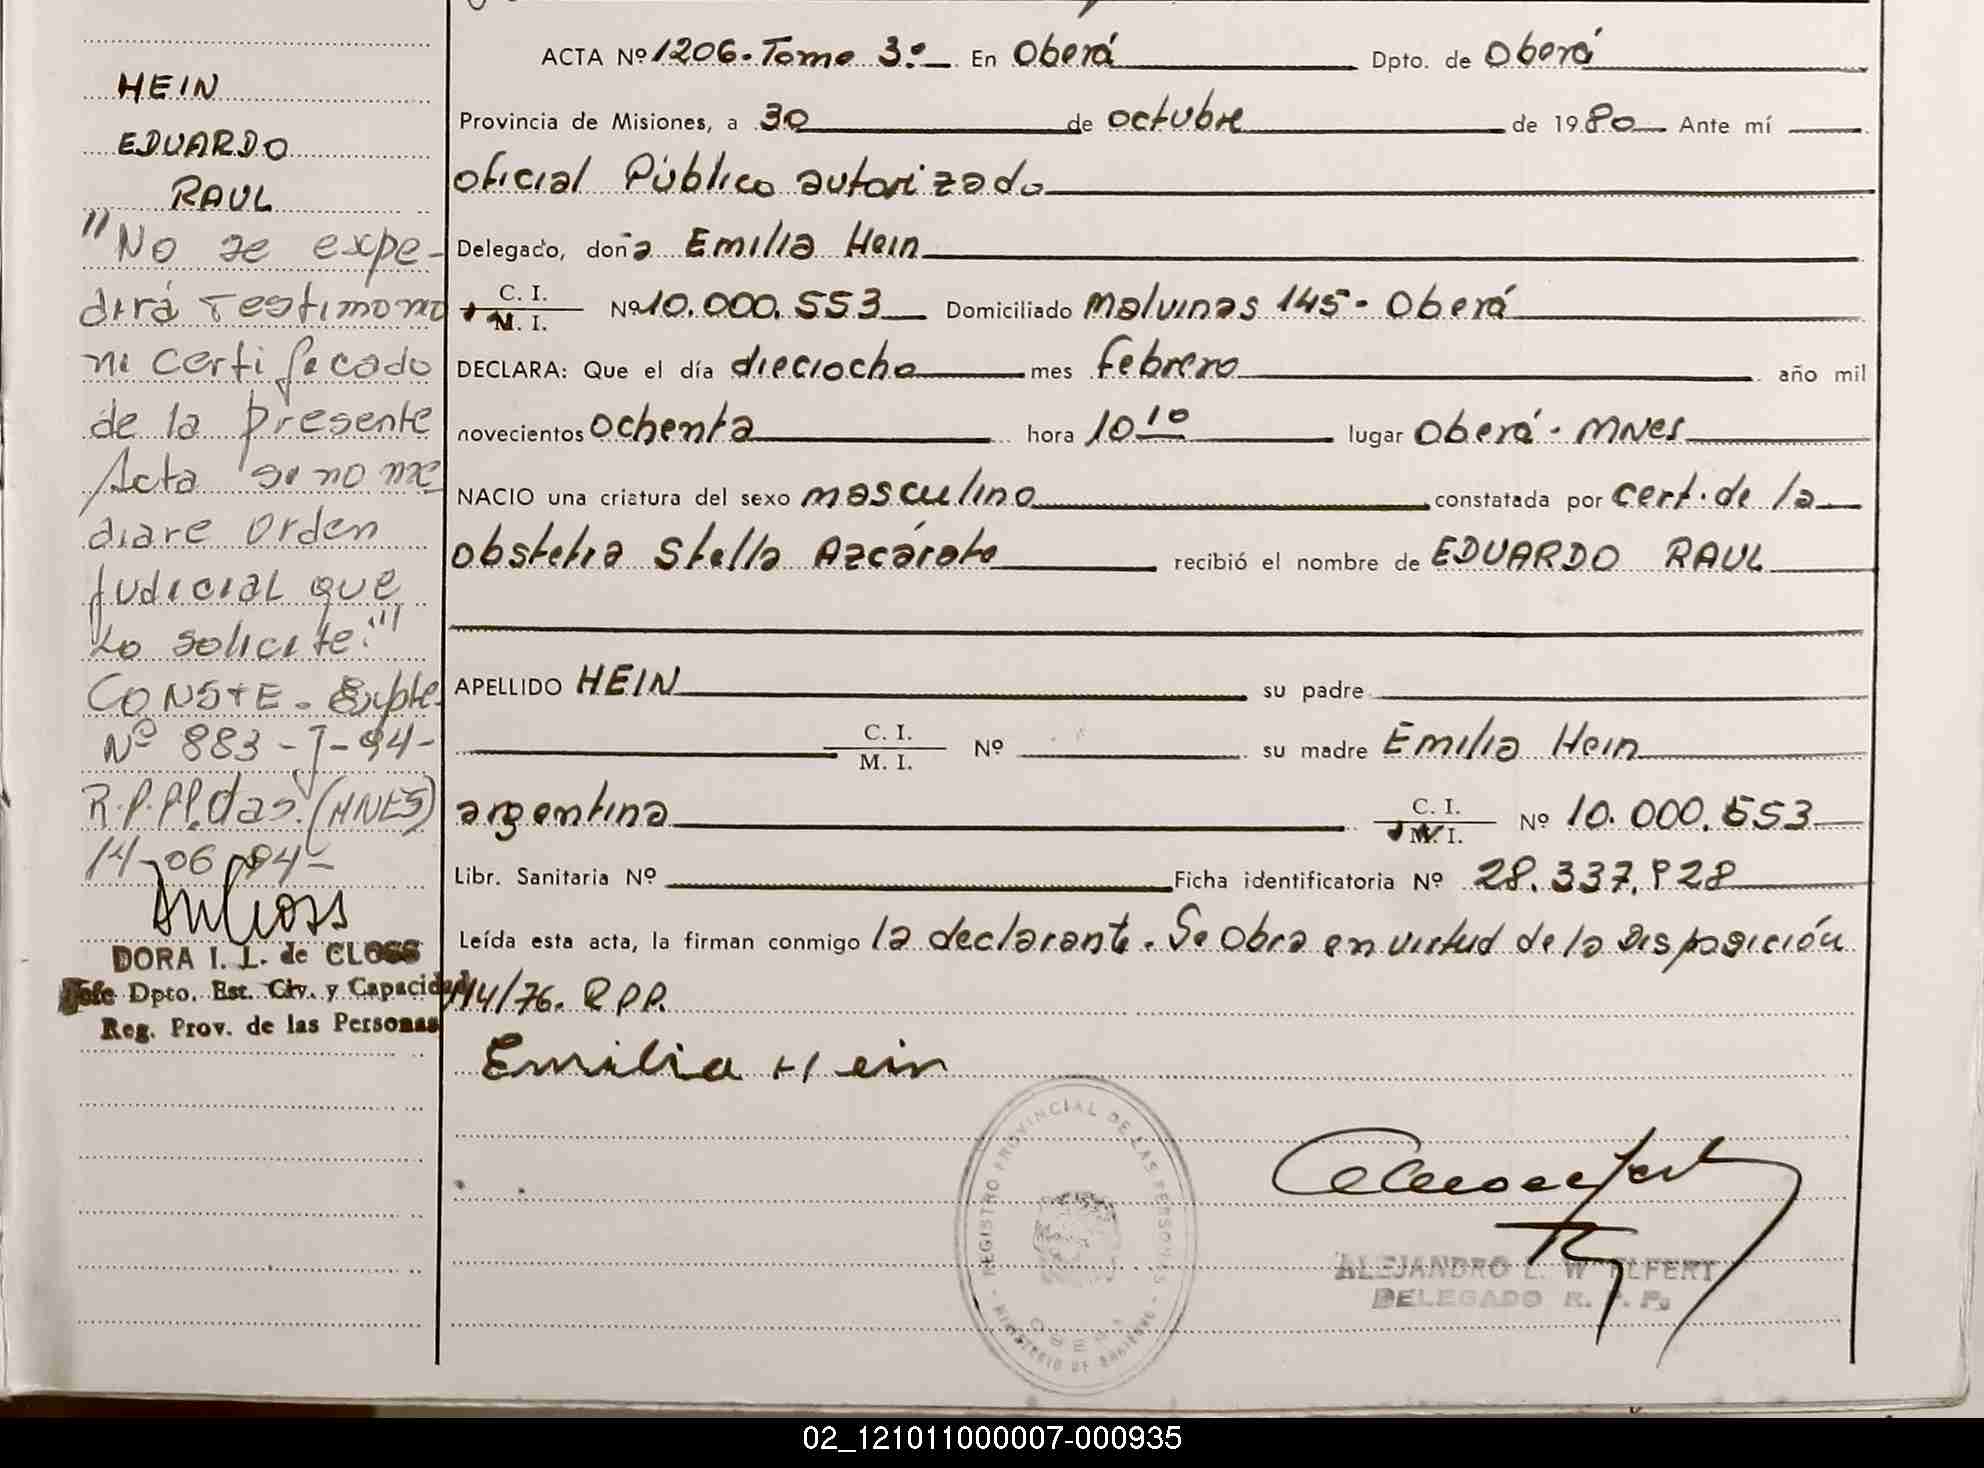 HEIN
EDUARDO
RAUL
"No se expe-
dirá Testimonio
ni certificado
de la presente
Acta si no me-
diare orden
Judicial que
Lo solicite."
CONSTE. Expte.
Nº 883-J-94-
R.P.PP.das.(MNES)
14-06-94-
DORA I. L. de CLOSS
Jefe Dpto. Est. Civ. y Capacidad
Reg. Prov. de las Personas
ACTA Nº 1206. Tomo 3º En Oberá Dpto. de Oberá
Provincia de Misiones, a 30 de octubre de 1980 Ante mí
oficial Público autorizado
Delegado, doña Emilia Hein
C. I.
M. I. Nº 10.000.553 Domiciliado Malvinas 145 - Oberá
DECLARA: Que el día dieciocho mes febrero año mil
novecientos ochenta hora 10 10 lugar Oberá - MNES
NACIO una criatura del sexo masculino constatada por cert. de la
obstetra Stella Azcárate recibió el nombre de EDUARDO RAUL
APELLIDO HEIN su padre
C. I.
M. I. Nº su madre Emilia Hein
argentina C. I.
M. I. Nº 10.000.553
Libr. Sanitaria Nº Ficha identificatoria Nº 28.337.928
Leída esta acta, la firman conmigo la declarante. Se obra en virtud de la Disposición
114/76. R.P.P.
Emilia Hein
REGISTRO PROVINCIAL DE LAS PERSONAS
MINISTERIO DE GOBIERNO
OBERA
ALEJANDRO L. W ELFERT
DELEGADO R. P. P.
02_121011000007-000935